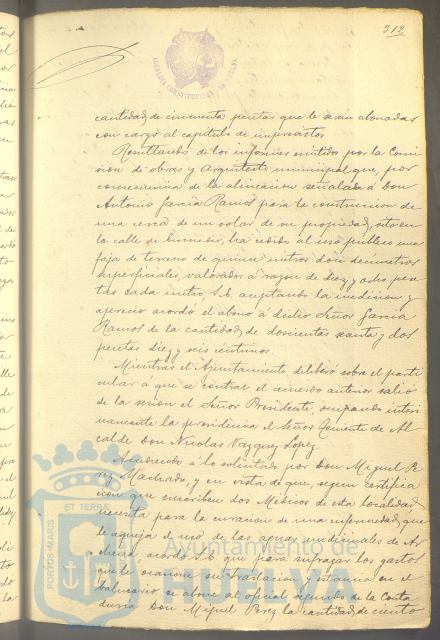 312
ALCALDÍA CONSTITUCIONAL DE HUELVA
cantidad de cincuenta pesetas que le serán abonadas
con cargo al capítulo de imprevistos.
Resultando de los informes emitidos por la Comi
sion de obras y Arquitecto municipal que, por
consecuencia de la alineacion señalada á Don
Antonio Garcia Ramos para la construccion de
una cerca de un solar de su propiedad, sito en
la calle de, ha cedido al uso publico una
faja de terreno de quince metros dos decimetros
superficiales, valorados á razon de diez y ocho pese
tas cada metro, S. E. aceptando la medicion y
aprecio acordó el abono á dicho Señor Garcia
Ramos de la cantidad de doscientas setenta y dos
pesetas diez y seis centimos.
Mientras el Ayuntamiento deliberó sobre el parti
cular á que se contrae el acuerdo anterior salió
de la sesion el Señor Presidente, ocupando interi
namente la presidencia el Señor Teniente de Al
calde Don Nicolas Vazquez Lopez.
Accediendo á lo solicitado por Don Miguel Pe
rez Machado, y en vista de que, segun certifica
cion que suscriben dos Médicos de esta localidad,
necesita para la curacion de una enfermedad que
le aqueja el uso de las aguas medicinales de Ar
chena, acordó S. E. que para sufragar los gastos
que le ocasione su traslacion y estancia en el
balneario se abone al oficial segundo de la Conta
duria Don Miguel Perez la cantidad de ciento
PORTUS MARIS
ET TERRAE
Ayuntamiento de
HUELVA